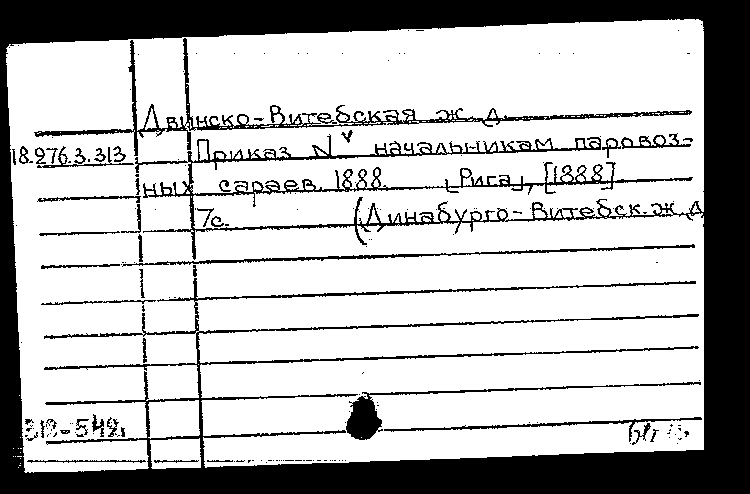 Двинско-Витебская ж. д.
18.276.3.313 Приказ № начальникам паровоз-
ных сараев. 1888. [Рига], [1888].
7с. (Динабурго-Витебск. ж. д
313-549.